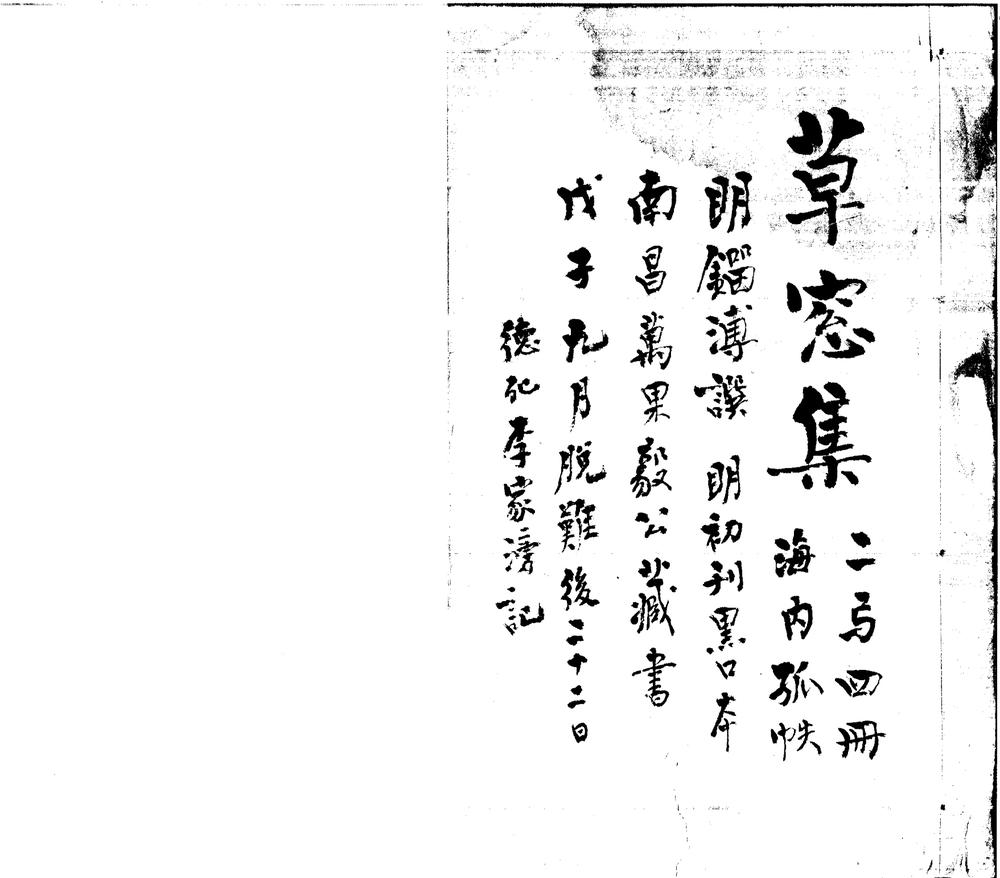 草窓集
二𢎥四冊
海内孤帙
明鎦溥譔 明初刊黑口本
南昌萬果毅公藏書
戊子九月脫難後二十二日
德化李家滂記